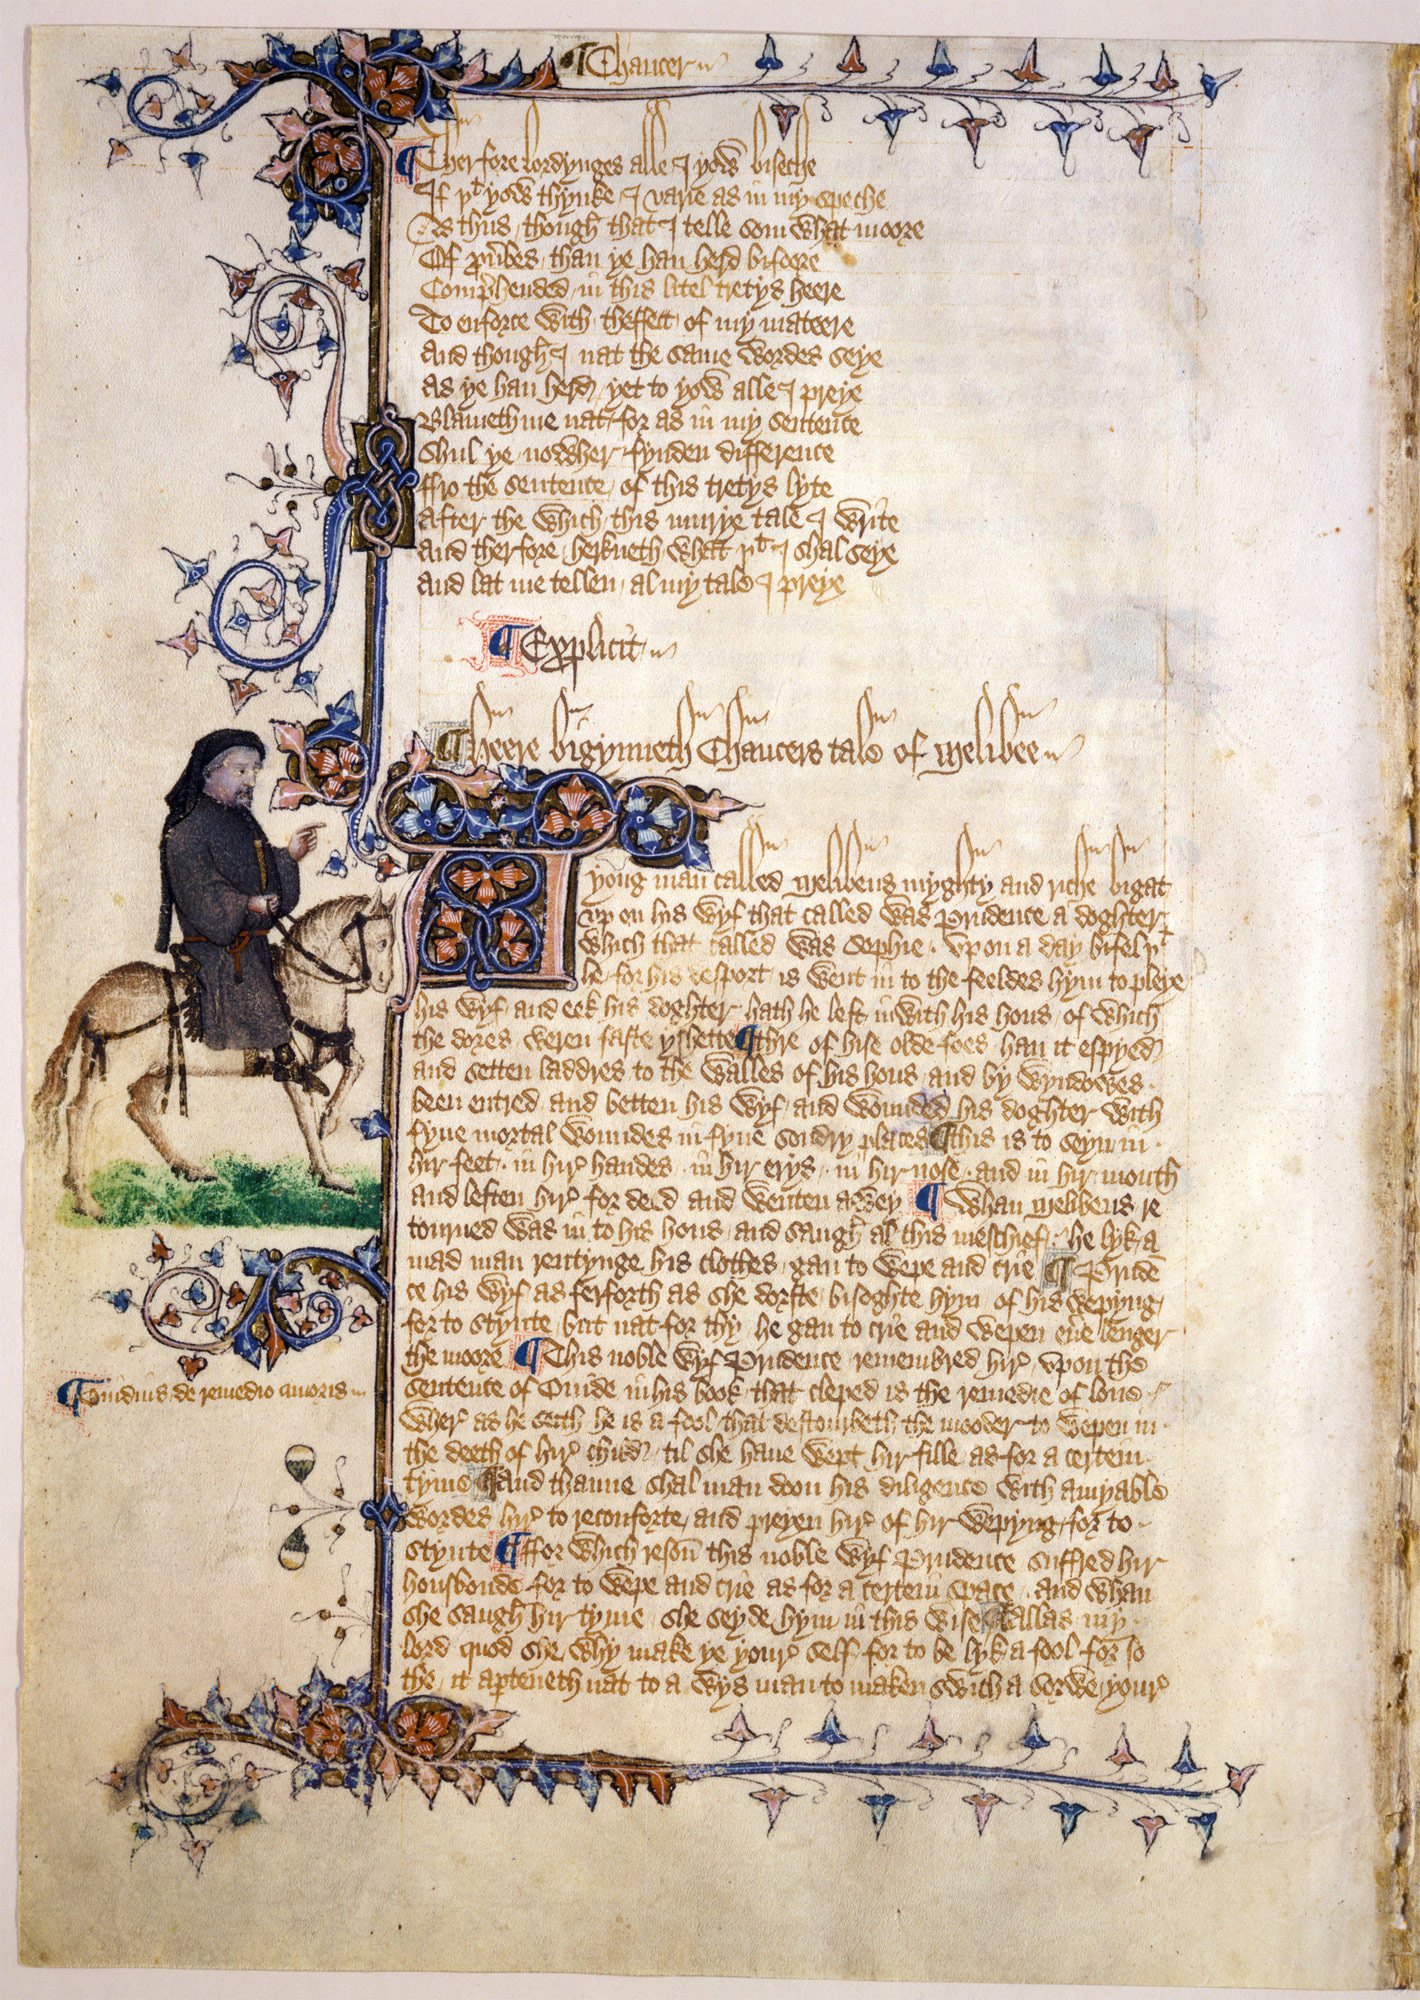 ¶ Chaucer
¶ Therfore lordynges alle I yow biseche
If þt yow thynke I varie as in my speche
As thus though that I telle som what moore
Of prouerbes than ye han herd bifoore
Comprehended in this litel tretys heere
To enforce with theffect of my mateere
And though I nat the same wordes seye
As ye han herd yet to yow alle I preye
Blameth me nat for as in my sentence
Shul ye nowher fynden difference
ffro the sentence of this tretys lyte
After the which this murye tale I write
And therfore herkneth what þt I shal seye
And lat me tellen al my tale I preye
¶ Explicit
¶ Heere bigynneth Chaucers tale of Melibee
A yong man called Melibeus myghty and riche bigat
vp on his wyf that called was Prudence a doghter
which that called was Sophie . vpon a day bifel þt
he for his desport is went in to the feeldes hym to pleye
his wyf and eek his doghter hath he left inwith his hous of which
the dores weren faste yshette ¶ thre of hise olde foes han it espyed
and setten laddres to the walles of his hous and by wyndowes
been entred and betten his wyf and wounded his doghter with
fyue mortal woundes in fyue sondry places ¶ this is to seyn in
hir feet . in hir handes . in hir erys . in hir nose . and in hir mouth
and leften hir for deed and wenten awey ¶ Whan Melibeus re
tourned was in to his hous and saugh al this meschief he lyk a
mad man rentynge his clothes gan to wepe and crie ¶ Pruden
ce his wyf as ferforth as she dorste bisoghte hym of his wepyng
for to stynte but nat for thy he gan to crie and wepen euere lenger
the moore ¶ This noble wyf Prudence remembred hir vpon the
sentence of Ouide in his book that cleped is the remedie of loue
¶ Ouidius de remedio amoris
wher as he seith he is a fool that destourbeth the mooder to wepen in
the deeth of hir child til she haue wept hir fille as for a certein
tyme ¶ And thanne shal man doon his diligence with amyable
wordes hir to reconforte and preyen hir of hir wepyng for to
stynte ¶ ffor which reson this noble wyf Prudence suffred hir
housbonde for to wepe and crie as for a certein space . and whan
she saugh hir tyme she seyde hym in this wise ¶ Allas my
lord quod she why make ye your self for to be lyk a fool for so
the it aperteneth nat to a wys man to maken swich a sorwe your